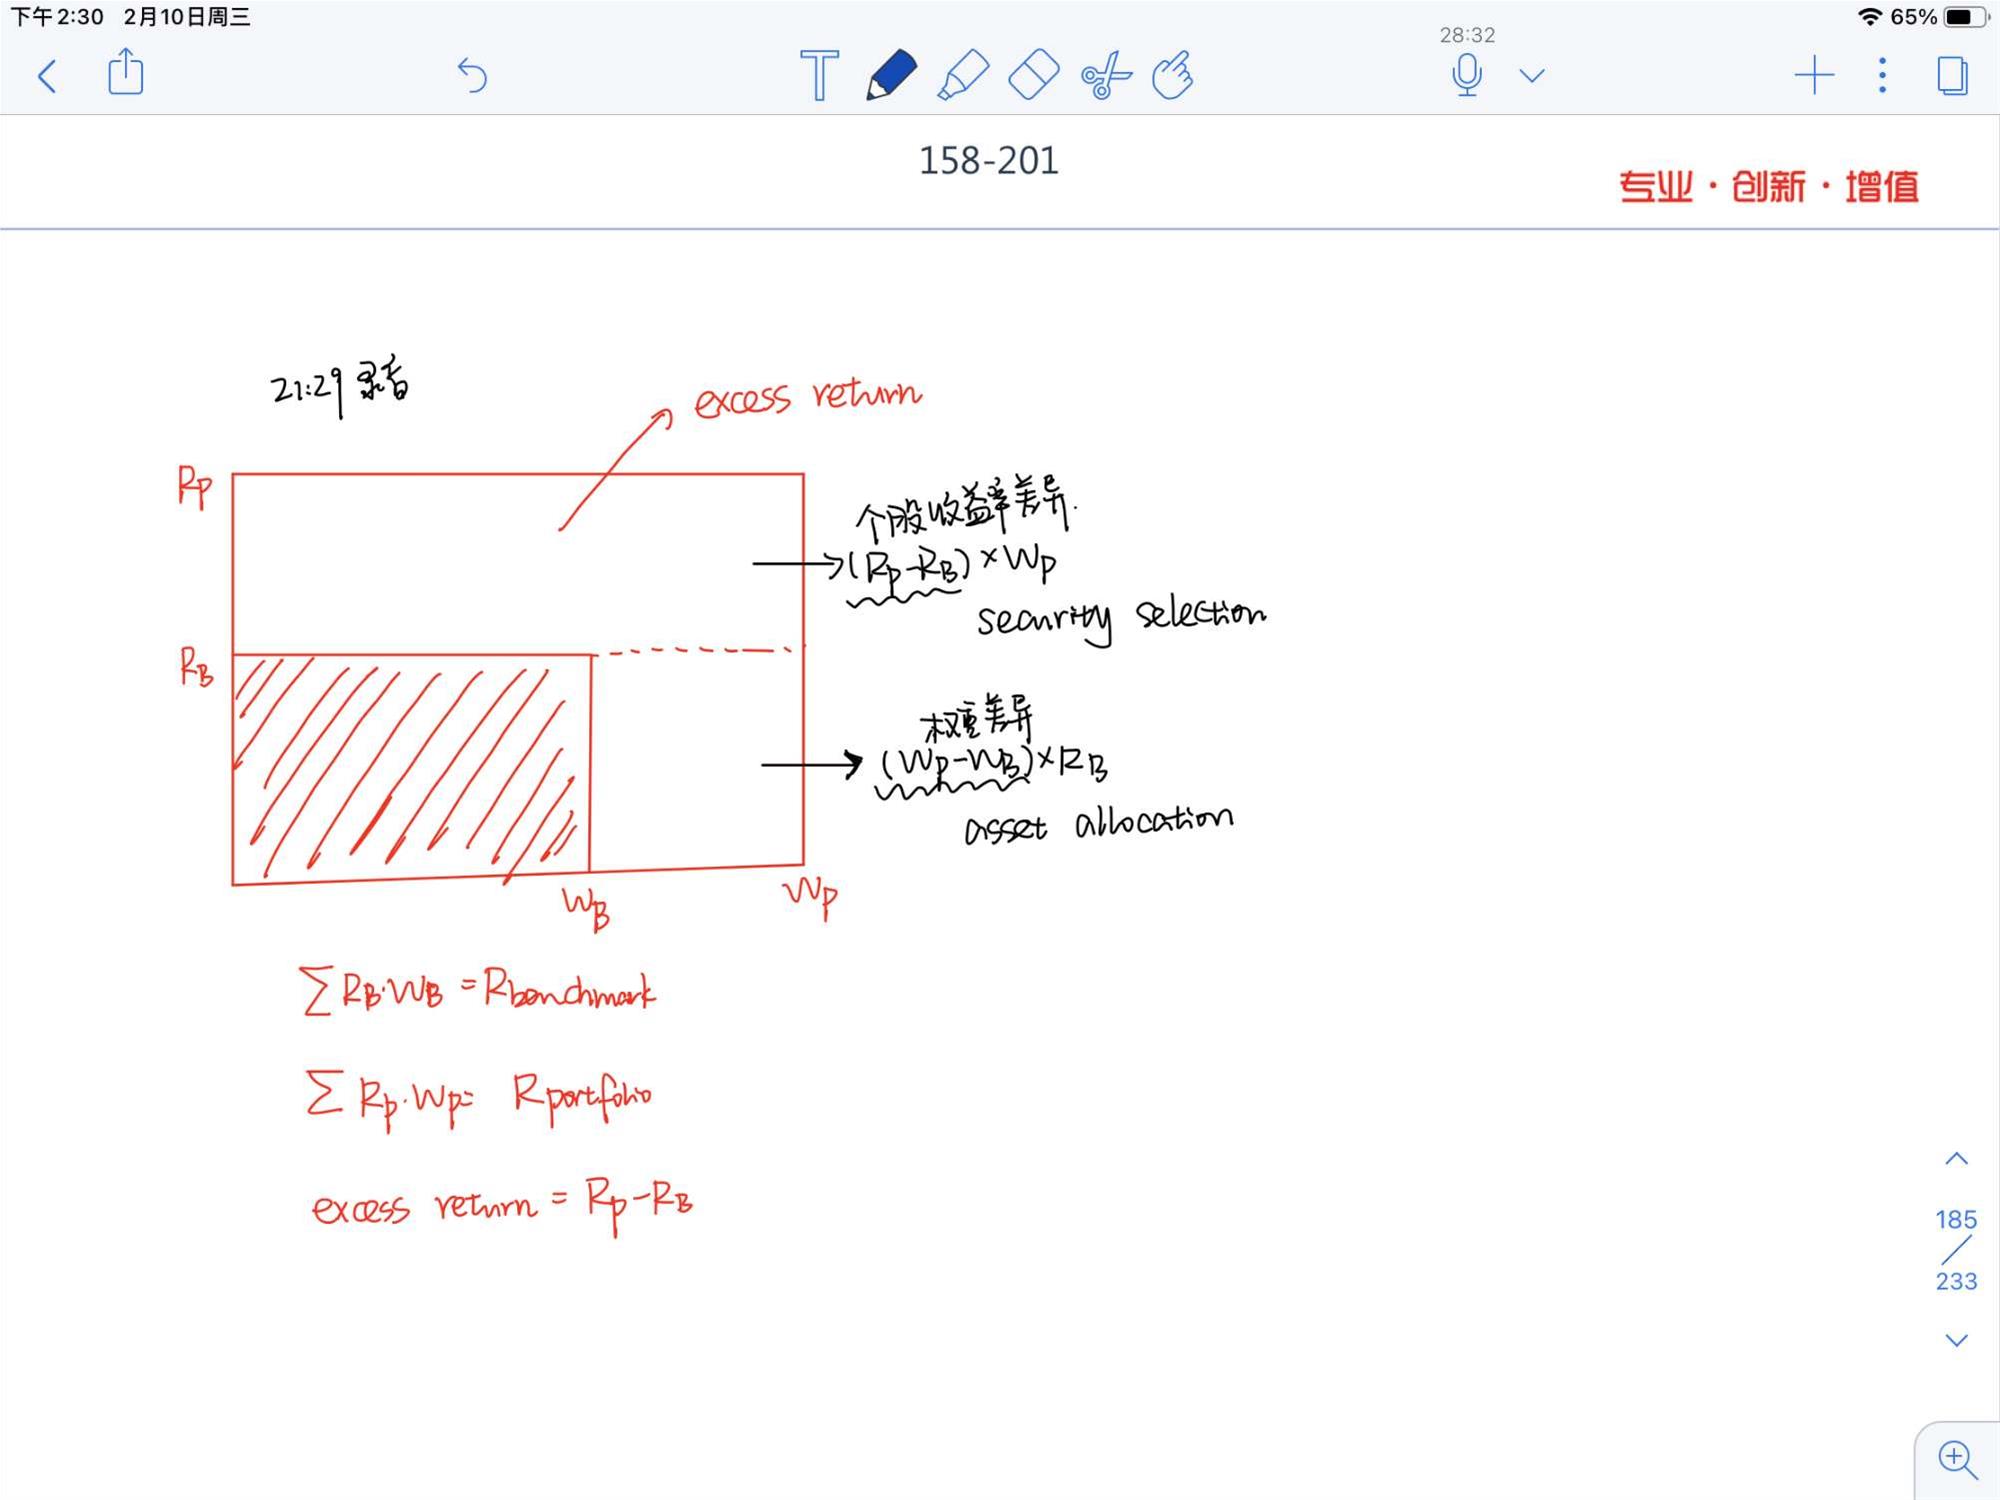 下午2:30 2月10日周三
65%
28:32
T
158-201
专业·创新·增值
21:29 录音
excess return
RP
个股收益率差异.
(RP-RB)×WP
security selection
RB
权重差异
(WP-WB)×RB
asset allocation
WB
WP
∑RB·WB=Rbenchmark
∑ RP·WP= Rportfolio
excess return = RP-RB
185
233